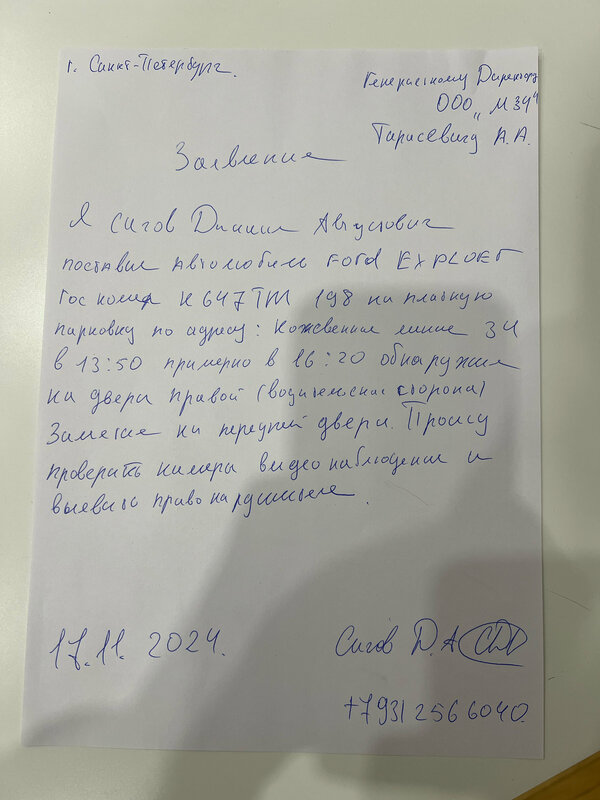 г. Санкт-Петербург.
Генеральному Директору
ООО „М34"
Тарасевичу А.А.
Заявление
Я Сигов Даниил Августович
поставил автомобиль Ford EXPLOEr
гос номер К 647 ТМ 198 на платную
парковку по адресу: Кожевенная линия 34
в 13:50 примерно в 16:20 обнаружил
на двери правой (водительская сторона)
на передней двери. Прошу
проверить камеры видео наблюдения и
выявить право нарушителя.
17.11. 2024.
Сигов Д.А
+7 931 256 6040.